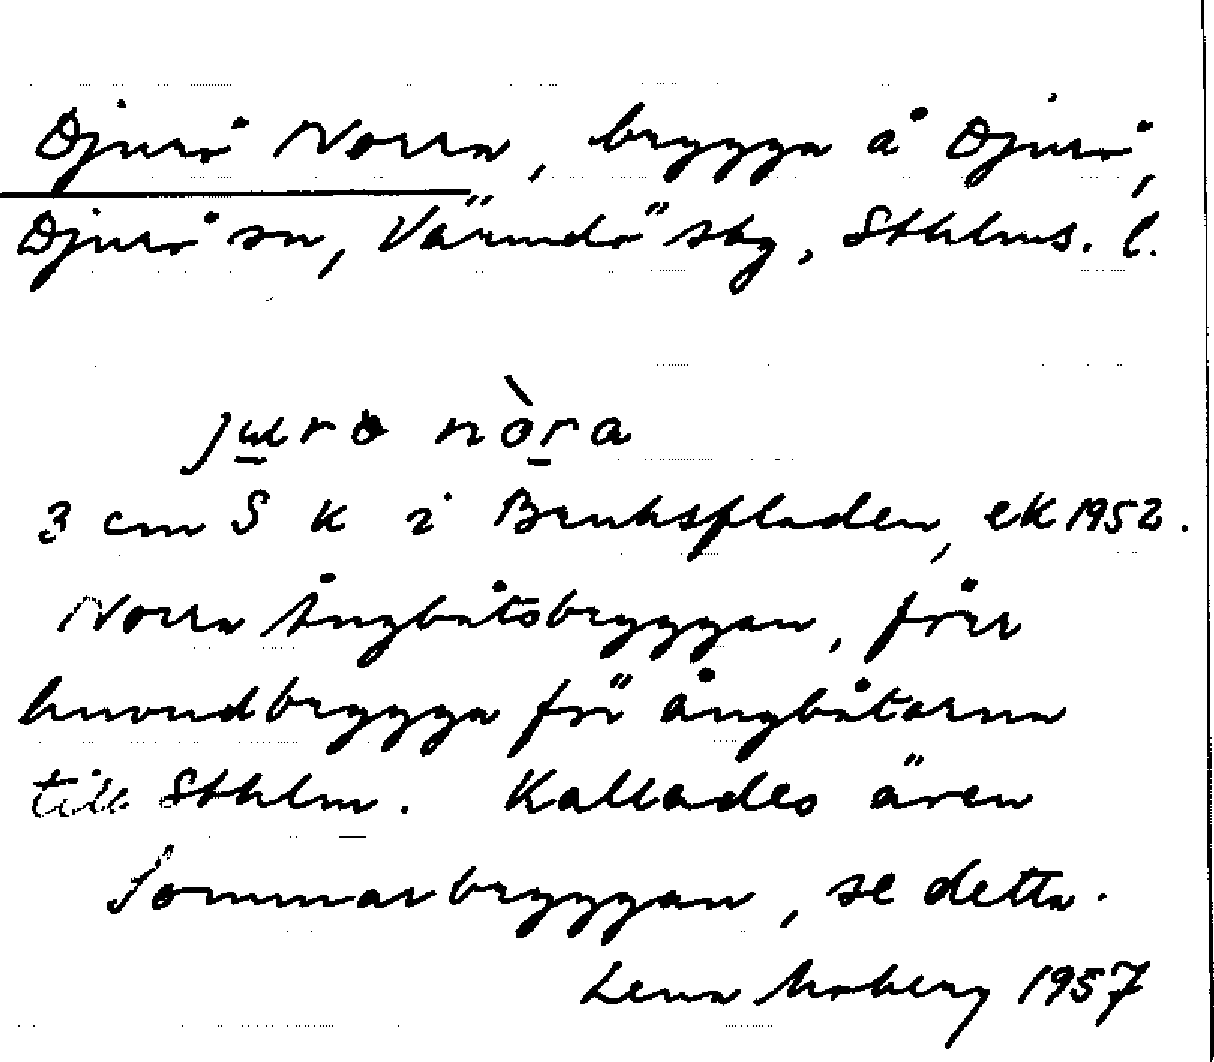 Djurö Norra, brygga å Djurö,
Djurö sn, Värmdö skg, Sthlms. l.
juro nòra
3 cm S k i Brukspladen, ek 1952.
Norra Ångbåtsbryggan, förr
huvudbrygga för ångbåtarna
till Sthlm. Kallades även
Sommarbryggan, se detta.
Lena Moberg 1957